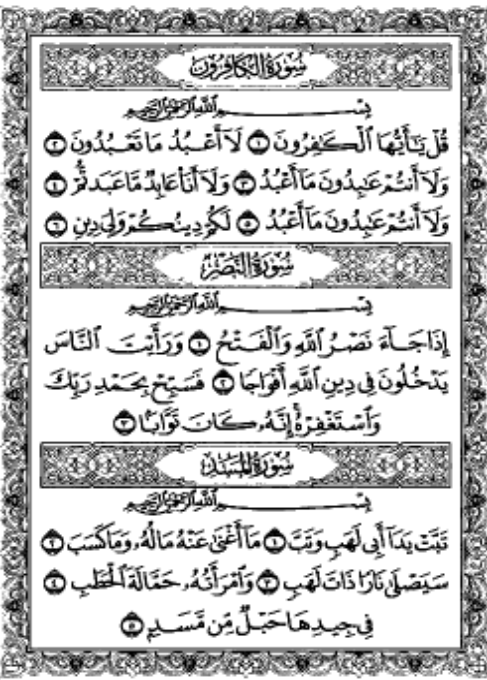 سُورَةُ الكَافِرُونَ
بِسْمِ اللَّهِ الرَّحْمَٰنِ الرَّحِيمِ
قُلْ يَٰٓأَيُّهَا ٱلْكَٰفِرُونَ ١ لَآ أَعْبُدُ مَا تَعْبُدُونَ ٢
وَلَآ أَنتُمْ عَٰبِدُونَ مَآ أَعْبُدُ ٣ وَلَآ أَنَا۠ عَابِدٌ مَّا عَبَدتُّمْ ٤
وَلَآ أَنتُمْ عَٰبِدُونَ مَآ أَعْبُدُ ٥ لَكُمْ دِينُكُمْ وَلِيَ دِينِ ٦
سُورَةُ النَّصْرِ
بِسْمِ اللَّهِ الرَّحْمَٰنِ الرَّحِيمِ
إِذَا جَآءَ نَصْرُ ٱللَّهِ وَٱلْفَتْحُ ١ وَرَأَيْتَ ٱلنَّاسَ
يَدْخُلُونَ فِي دِينِ ٱللَّهِ أَفْوَاجًا ٢ فَسَبِّحْ بِحَمْدِ رَبِّكَ
وَٱسْتَغْفِرْهُ إِنَّهُۥ كَانَ تَوَّابًۢا ٣
سُورَةُ المَسَدِ
بِسْمِ اللَّهِ الرَّحْمَٰنِ الرَّحِيمِ
تَبَّتْ يَدَآ أَبِي لَهَبٍ وَتَبَّ ١ مَآ أَغْنَىٰ عَنْهُ مَالُهُۥ وَمَا كَسَبَ ٢
سَيَصْلَىٰ نَارًا ذَاتَ لَهَبٍ ٣ وَٱمْرَأَتُهُۥ حَمَّالَةَ ٱلْحَطَبِ ٤
فِي جِيدِهَا حَبْلٌ مِّن مَّسَدٍۭ ٥